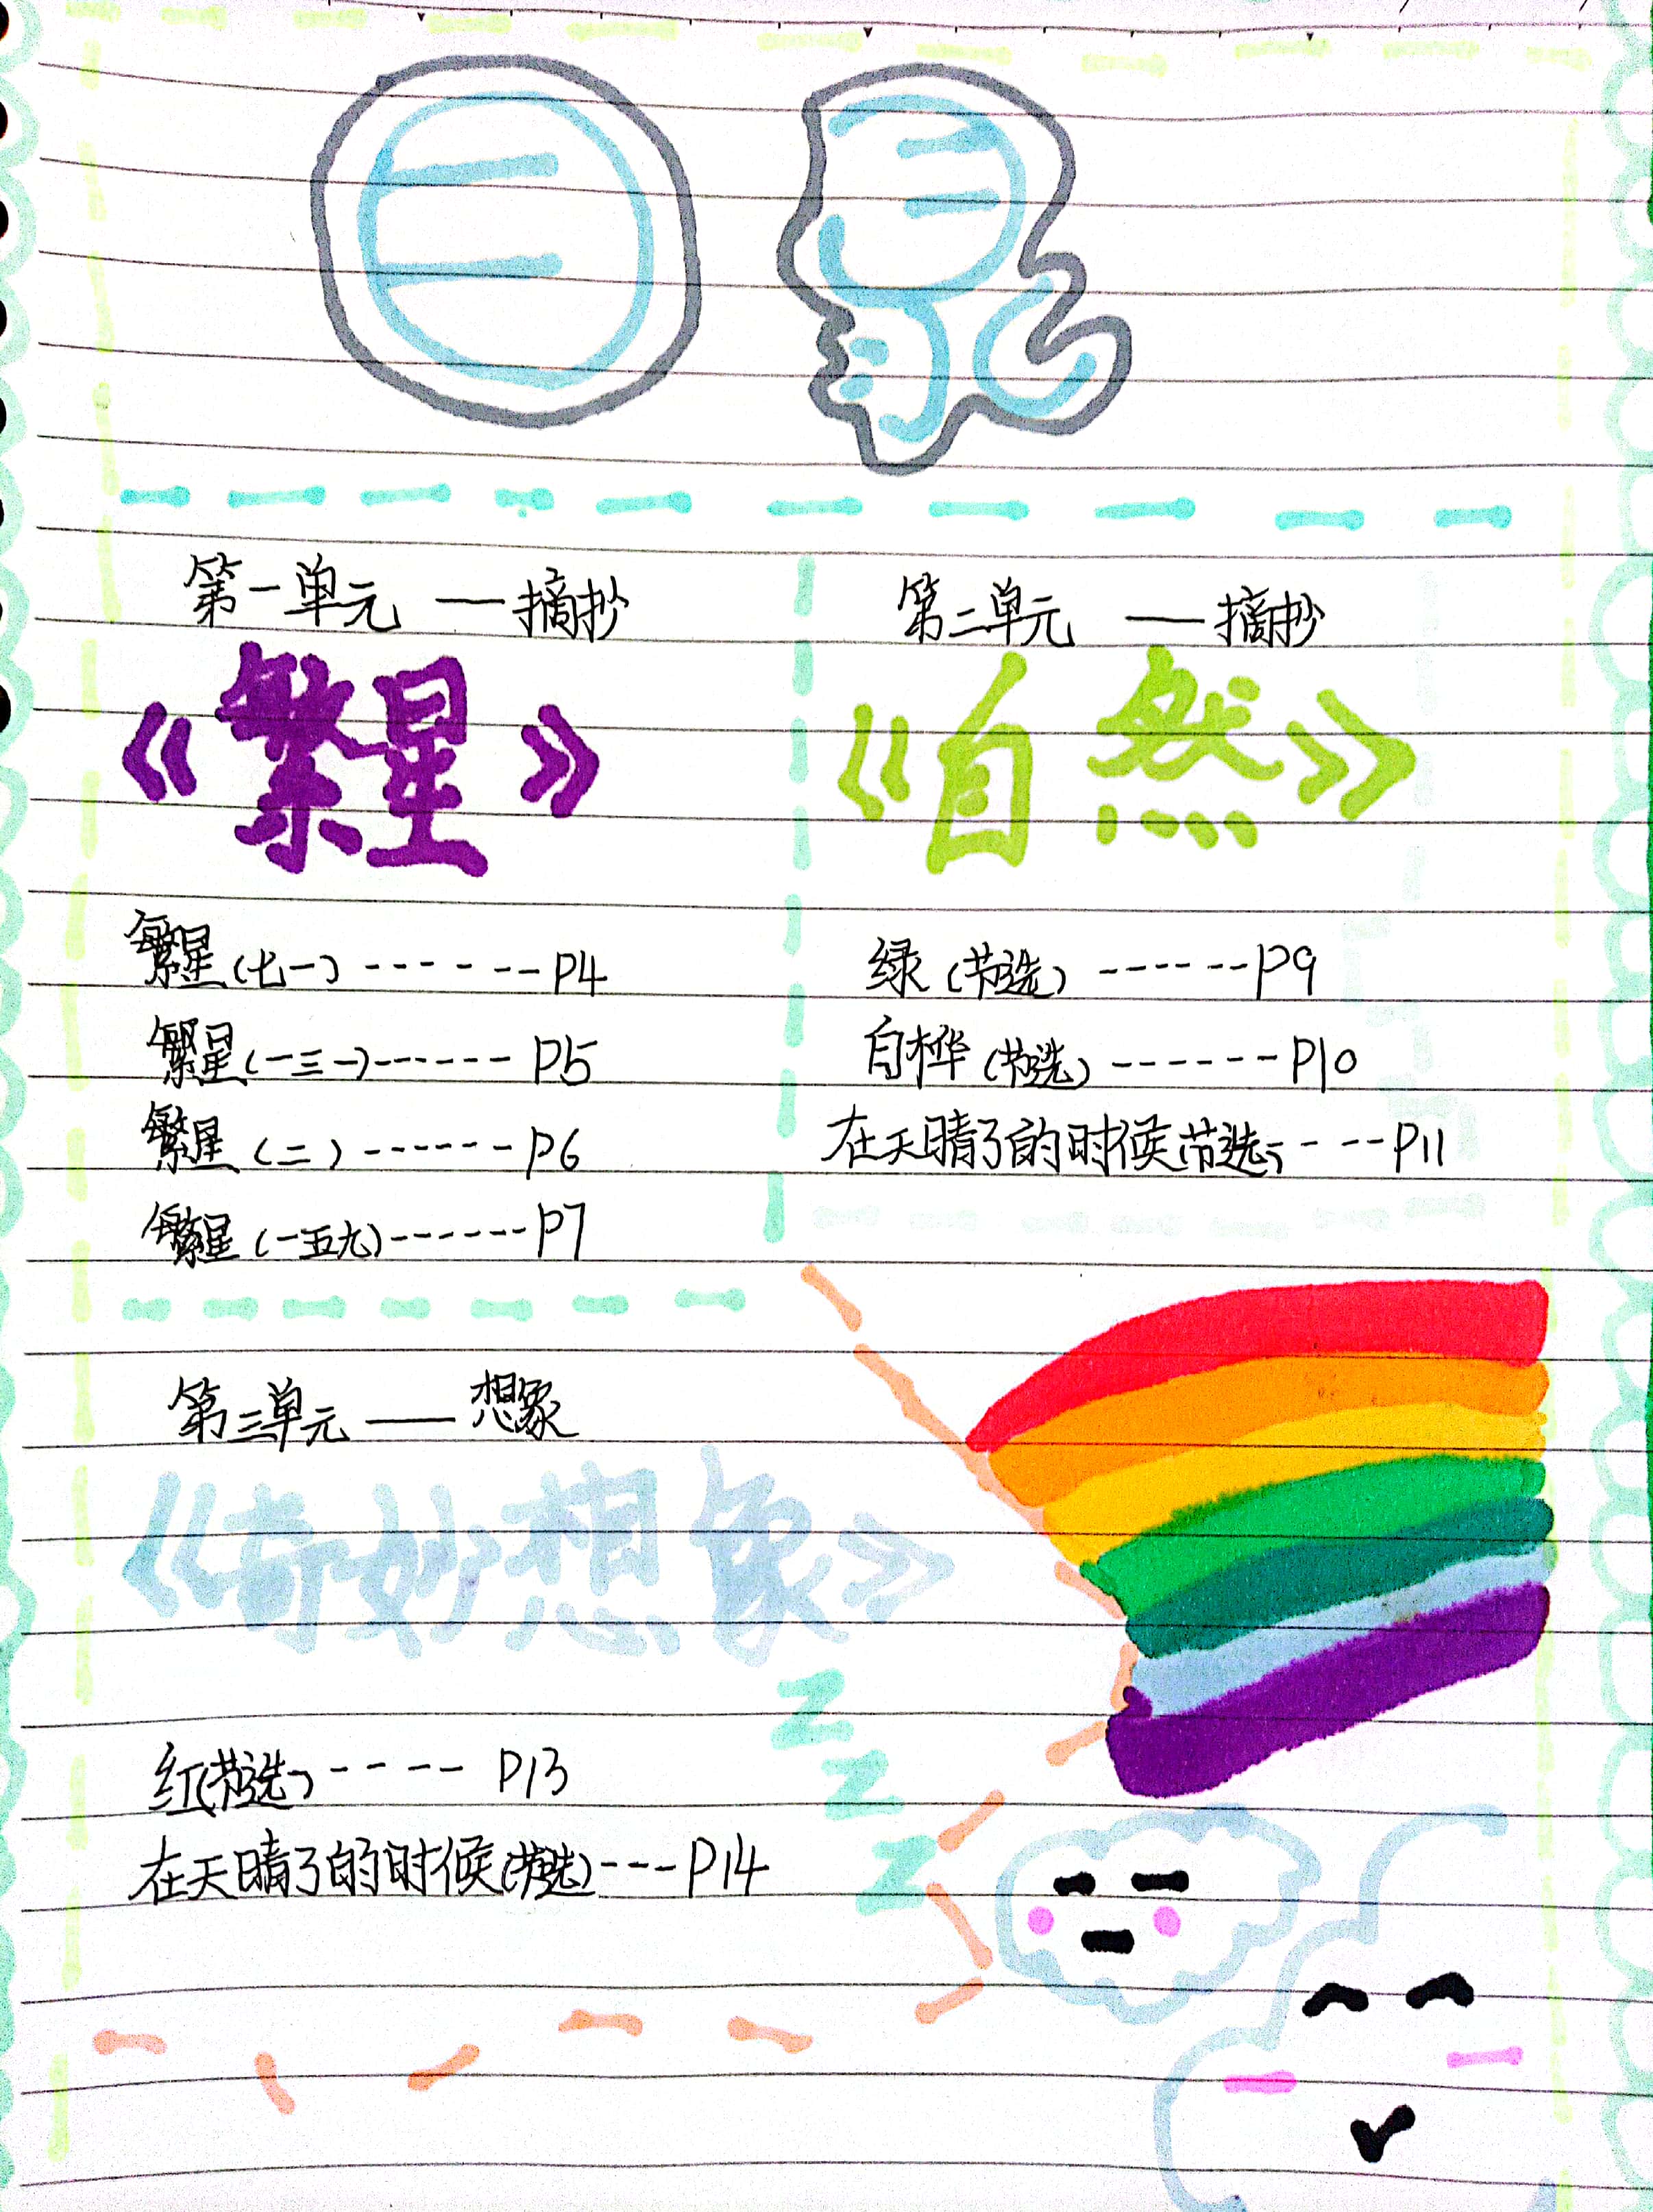 目录
第一单元 —— 摘抄
《繁星》
繁星(七一) ------- P4
繁星(一三一)------ P5
繁星(二)------ P6
繁星(一五九)------ P7
第二单元 —— 摘抄
《自然》
绿(节选) ------ P9
白桦(节选) ------ P10
在天晴了的时候(节选)---- P11
第三单元 —— 想象
《奇妙想象》
红(节选)---- P13
在天晴了的时候(节选)--- P14
Z
Z
Z